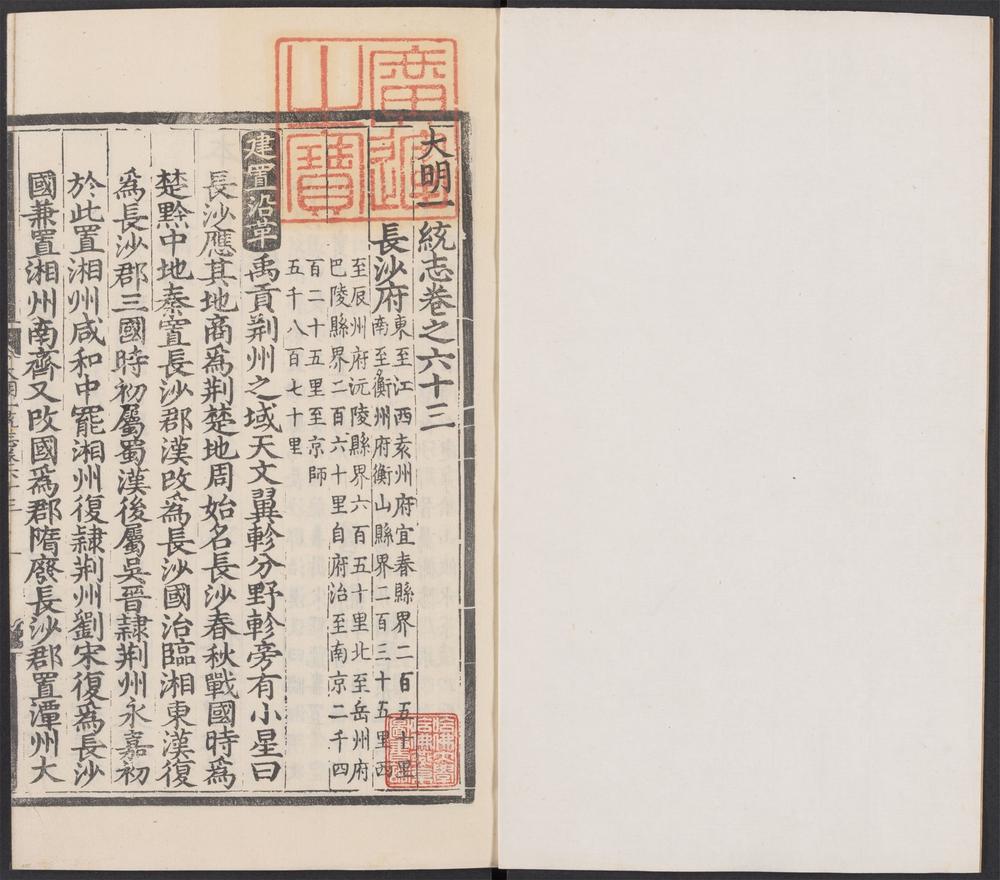 廣運
之寶
大明一統志卷之六十三
長沙府東至江西袁州府宜春縣界二百五十里
南至衡州府衡山縣界二百三十五里西
至辰州府沅陵縣界六百五十里北至岳州府
巴陵縣界二百六十里自府治至南京二千四
百二十五里至京師
五千八百七十里
建置沿革禹貢荆州之域天文翼軫分野軫旁有小星曰
長沙應其地商爲荆楚地周始名長沙春秋戰國時爲
楚黔中地秦置長沙郡漢改爲長沙國治臨湘東漢復
爲長沙郡三國時初屬蜀漢後屬吳晉隷荆州永嘉初
於此置湘州咸和中罷湘州復隷荆州劉宋復爲長沙
國兼置湘州南齊又改國爲郡隋廢長沙郡置潭州大